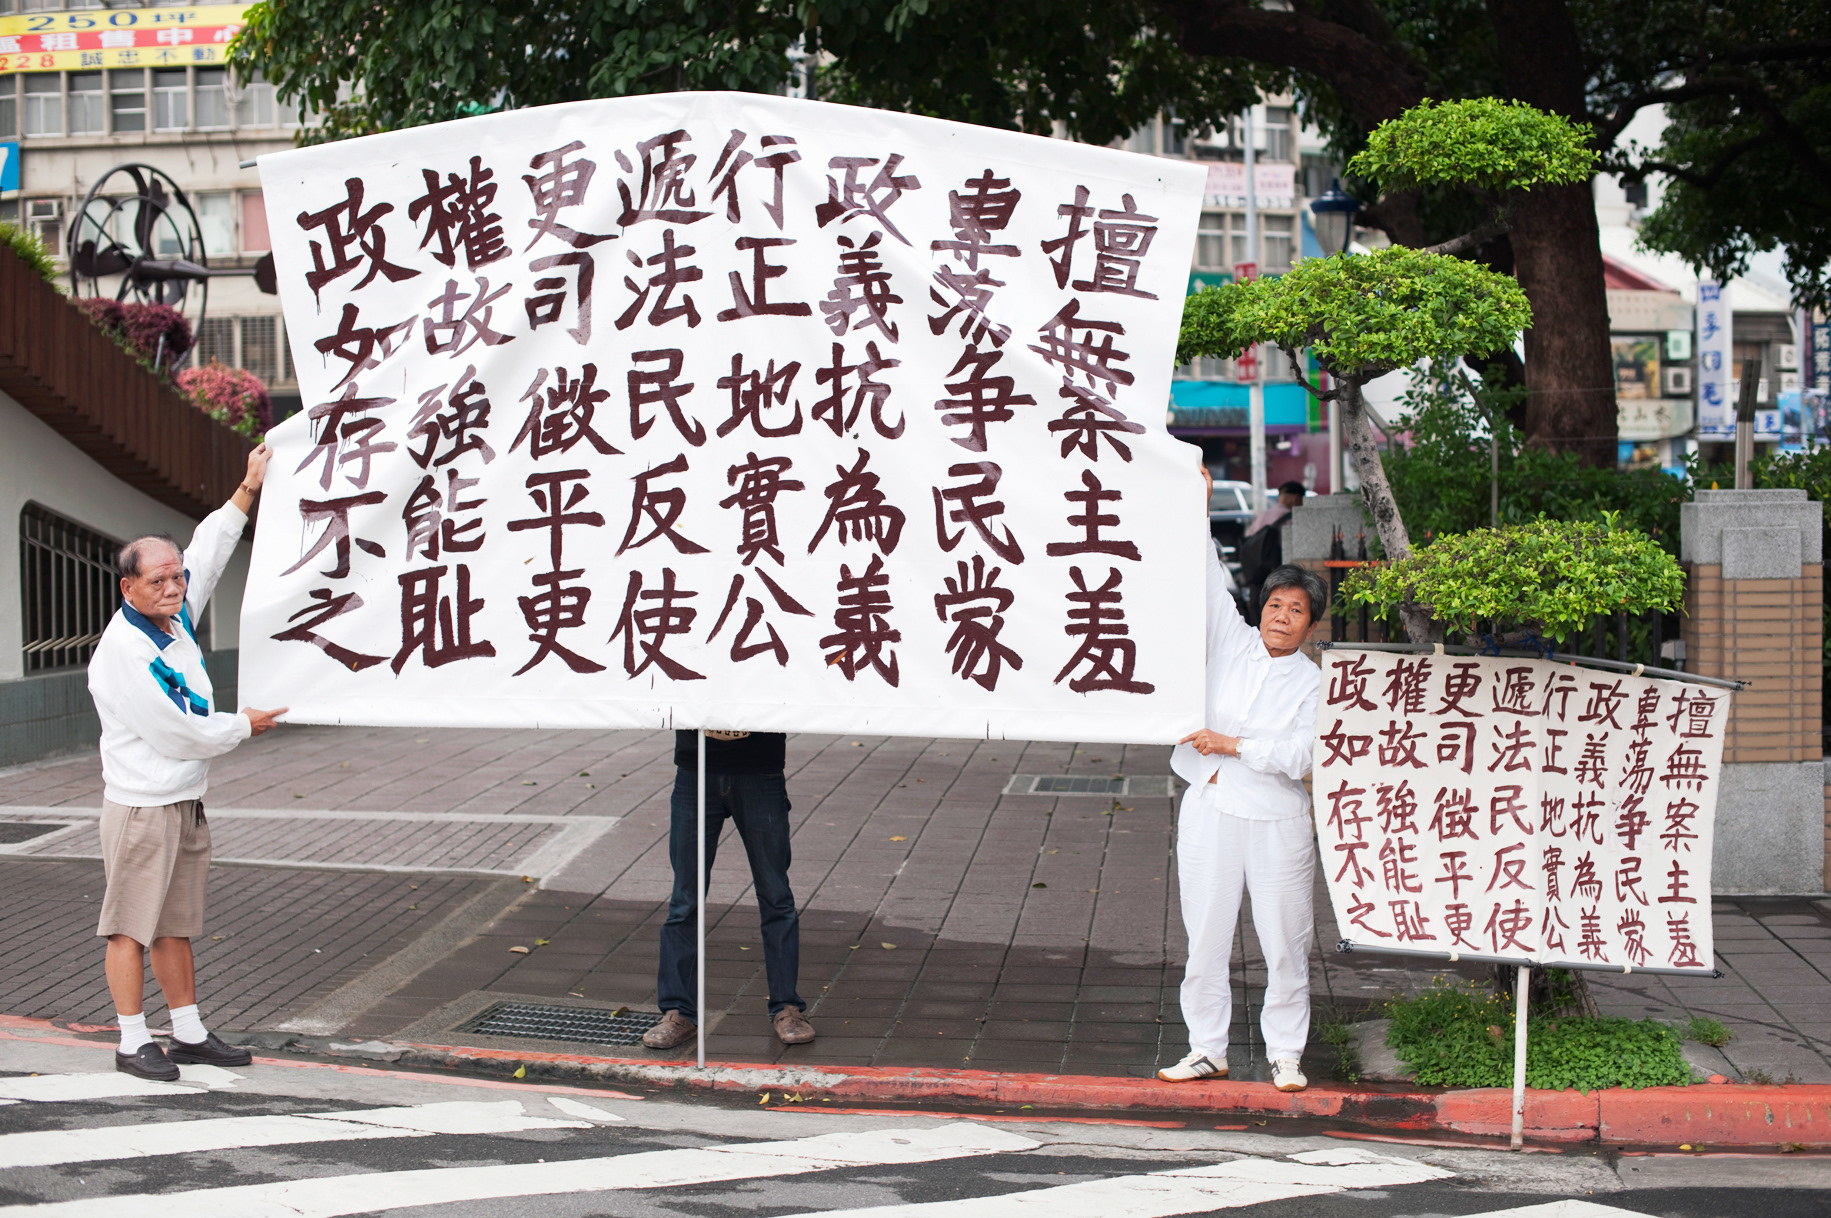 250坪
區租售中心
228 誠忠不動
政權更遞行政專擅
如故司法正義蕩無
存強徵民地抗爭案
不能平反實為民主
之恥更使公義蒙羞
政權更遞行政專擅
如故司法正義蕩無
存強徵民地抗爭案
不能平反實為民主
之恥更使公義蒙羞